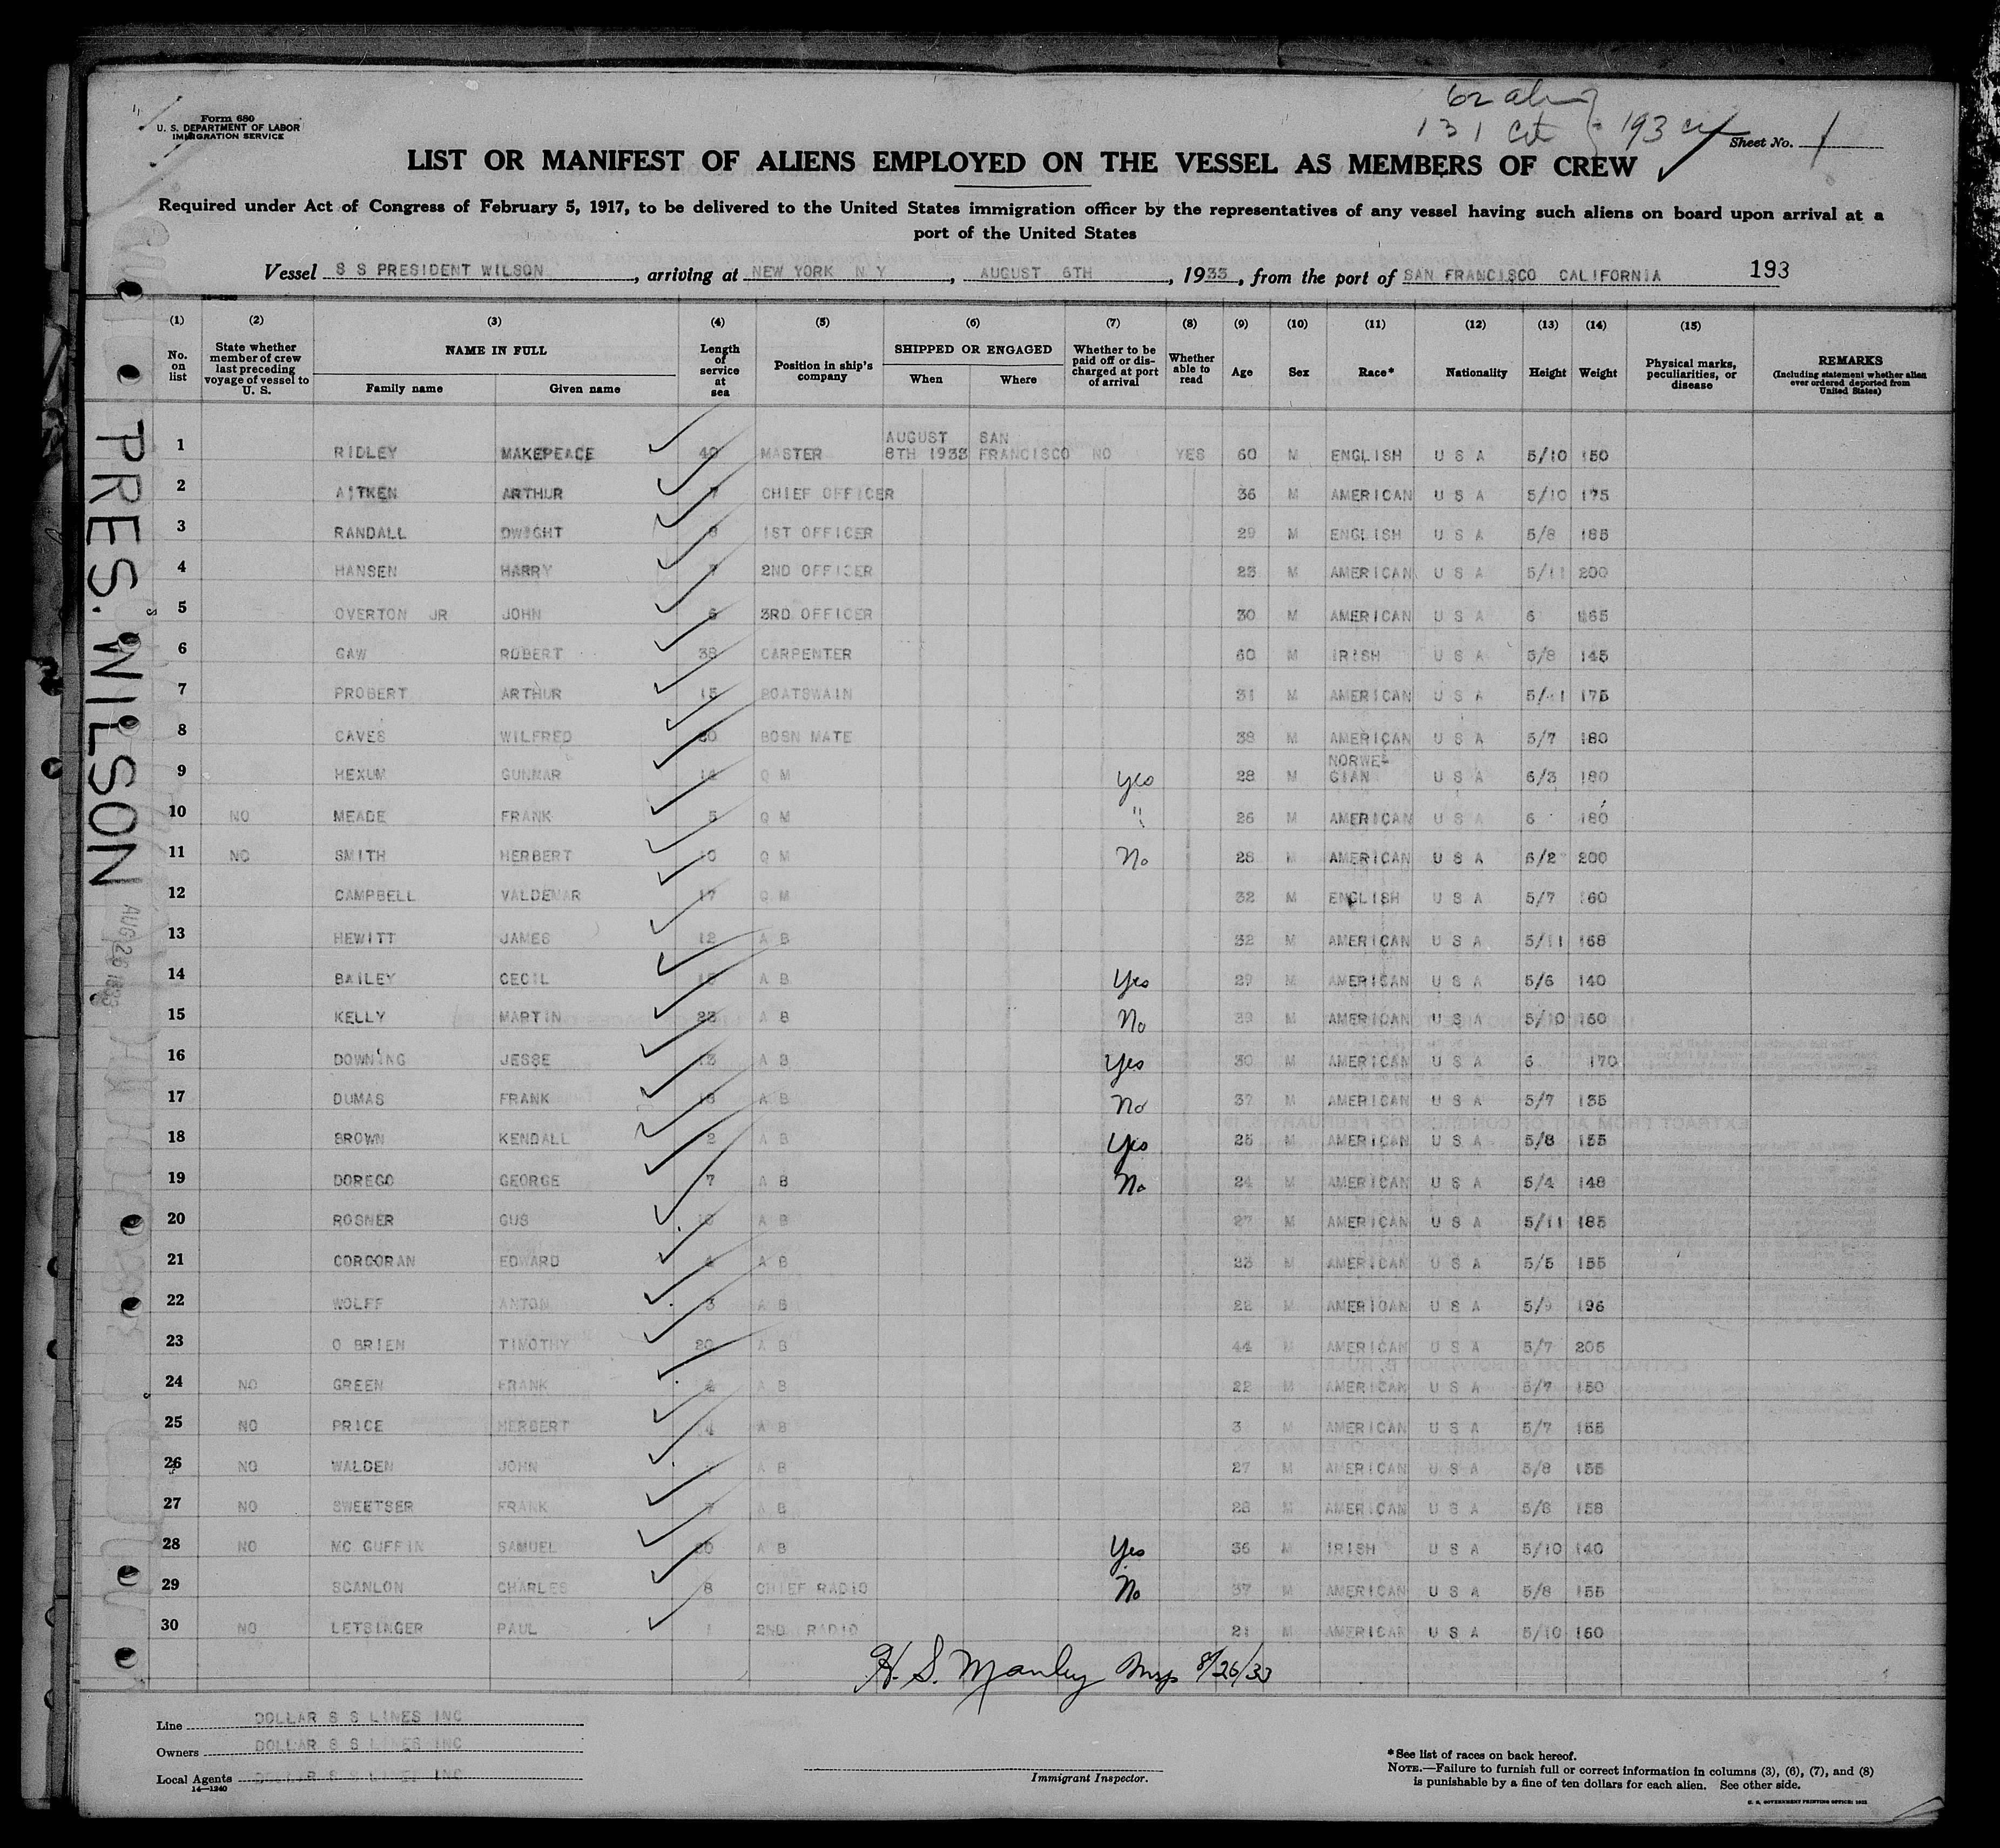 62 ali
131 Cit } 193
Form 680
U. S. DEPARTMENT OF LABOR
IMMIGRATION SERVICE
Sheet No. 1
LIST OR MANIFEST OF ALIENS EMPLOYED ON THE VESSEL AS MEMBERS OF CREW
Required under Act of Congress of February 5, 1917, to be delivered to the United States immigration officer by the representatives of any vessel having such aliens on board upon arrival at a
port of the United States
Vessel S S PRESIDENT WILSON, arriving at NEW YORK N Y, AUGUST 6TH, 1933, from the port of SAN FRANCISCO CALIFORNIA 193
(1) (2) (3) (4) (5) (6) (7) (8) (9) (10) (11) (12) (13) (14) (15)
No. on list
State whether member of crew last preceding voyage of vessel to U. S.
NAME IN FULL
Family name Given name
Length of service at sea
Position in ship's company
SHIPPED OR ENGAGED
When Where
Whether to be paid off or discharged at port of arrival
Whether able to read
Age
Sex
Race*
Nationality
Height
Weight
Physical marks, peculiarities, or disease
REMARKS
(Including statement whether alien ever ordered deported from United States)
1 RIDLEY MAKEPEACE 40 MASTER AUGUST 8TH 1933 SAN FRANCISCO NO YES 60 M ENGLISH U S A 5/10 150
2 AITKEN ARTHUR 7 CHIEF OFFICER 36 M AMERICAN U S A 5/10 175
3 RANDALL DWIGHT 1ST OFFICER 29 M ENGLISH U S A 5/8 185
4 HANSEN HARRY 7 2ND OFFICER 23 M AMERICAN U S A 5/11 200
5 OVERTON JR JOHN 6 3RD OFFICER 30 M AMERICAN U S A 6 165
6 GAW ROBERT 38 CARPENTER 60 M IRISH U S A 5/8 145
7 PROBERT ARTHUR 15 BOATSWAIN 31 M AMERICAN U S A 5/11 175
8 CAVES WILFRED 20 BOSN MATE 38 M AMERICAN U S A 5/7 180
9 HEXUM GUNNAR 14 Q M yes 28 M NORWEGIAN U S A 6/3 180
10 NO MEADE FRANK 5 Q M " 26 M AMERICAN U S A 6 180
11 NO SMITH HERBERT 10 Q M No 28 M AMERICAN U S A 6/2 200
12 CAMPBELL VALDEMAR 17 Q M 32 M ENGLISH U S A 5/7 160
13 HEWITT JAMES 12 A B 32 M AMERICAN U S A 5/11 168
14 BAILEY CECIL A B Yes 29 M AMERICAN U S A 5/6 140
15 KELLY MARTIN 23 A B No 39 M AMERICAN U S A 5/10 160
16 DOWNING JESSE 13 A B Yes 30 M AMERICAN U S A 6 170
17 DUMAS FRANK 18 A B No 37 M AMERICAN U S A 5/7 135
18 BROWN KENDALL 2 A B Yes 25 M AMERICAN U S A 5/8 155
19 DOREGO GEORGE 7 A B No 24 M AMERICAN U S A 5/4 148
20 ROSNER GUS A B 27 M AMERICAN U S A 5/11 185
21 CORCORAN EDWARD 4 A B 23 M AMERICAN U S A 5/5 155
22 WOLFF ANTON 3 A B 22 M AMERICAN U S A 5/9 196
23 O BRIEN TIMOTHY 20 A B 44 M AMERICAN U S A 5/7 205
24 NO GREEN FRANK A B 22 M AMERICAN U S A 5/7 150
25 NO PRICE HERBERT 4 A B 3 M AMERICAN U S A 5/7 155
26 NO WALDEN JOHN A B 27 M AMERICAN U S A 5/8 155
27 NO SWEETSER FRANK 7 A B 28 M AMERICAN U S A 5/8 158
28 NO MC GUFFIN SAMUEL 20 A B Yes 36 M IRISH U S A 5/10 140
29 SCANLON CHARLES 8 CHIEF RADIO No 37 M AMERICAN U S A 5/8 155
30 NO LETSINGER PAUL 1 2ND RADIO 21 M AMERICAN U S A 5/10 160
H. S. Manley Insp 8/26/33
PRES. WILSON
AUG 26 1933
Line DOLLAR S S LINES INC
Owners DOLLAR S S LINES INC
Local Agents DOLLAR S S LINES INC
14—1240
Immigrant Inspector.
*See list of races on back hereof.
NOTE.—Failure to furnish full or correct information in columns (3), (6), (7), and (8)
is punishable by a fine of ten dollars for each alien. See other side.
U. S. GOVERNMENT PRINTING OFFICE: 1932